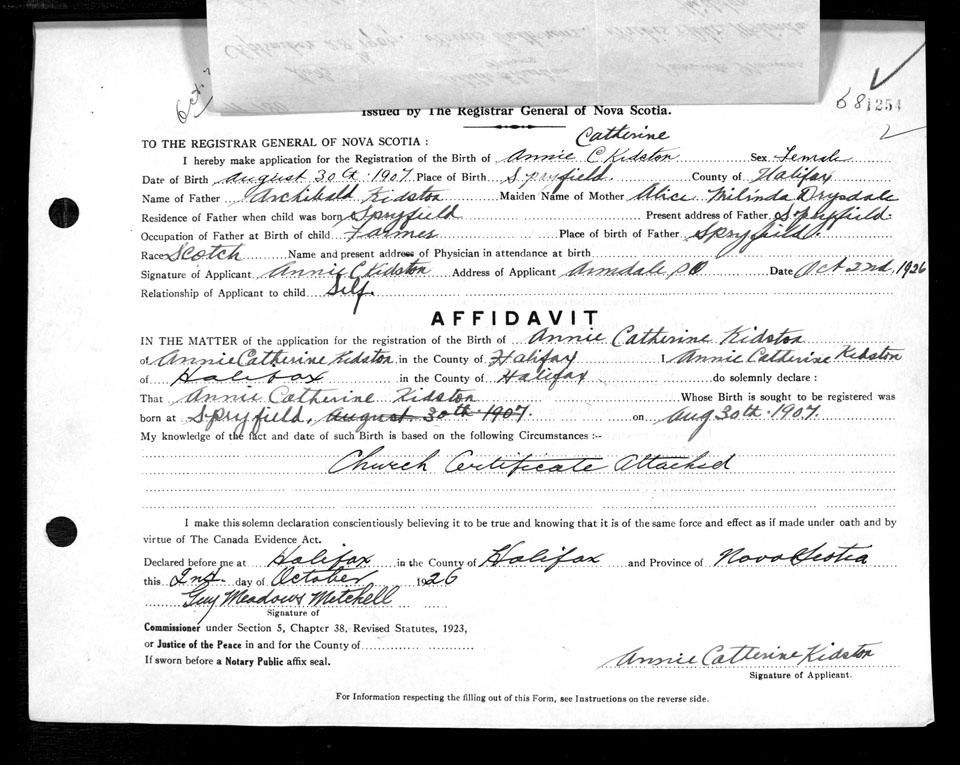 Oct.
681254
2
Issued by The Registrar General of Nova Scotia.
TO THE REGISTRAR GENERAL OF NOVA SCOTIA :
Catherine
I hereby make application for the Registration of the Birth of Annie C Kidston Sex Female
Date of Birth August 30th 1907 Place of Birth Spryfield. County of Halifax
Name of Father Archibald Kidston Maiden Name of Mother Alice Milinda Drysdale
Residence of Father when child was born Spryfield Present address of Father Spryfield.
Occupation of Father at Birth of child Farmer Place of birth of Father Spryfield.
Race Scotch Name and present address of Physician in attendance at birth
Signature of Applicant Annie C Kidston Address of Applicant Armdale PO Date Oct 2nd, 1926
Relationship of Applicant to child Self.
AFFIDAVIT
IN THE MATTER of the application for the registration of the Birth of Annie Catherine Kidston
of Annie Catherine Kidston in the County of Halifax I Annie Catherine Kidston
of Halifax in the County of Halifax do solemnly declare :
That Annie Catherine Kidston Whose Birth is sought to be registered was
born at Spryfield, August 30th 1907. on Aug 30th 1907.
My knowledge of the fact and date of such Birth is based on the following Circumstances :--
Church Certificate Attached
I make this solemn declaration conscientiously believing it to be true and knowing that it is of the same force and effect as if made under oath and by
virtue of The Canada Evidence Act.
Declared before me at Halifax in the County of Halifax and Province of Nova Scotia
this 2nd day of October 1926
Guy Meadows Mitchell
Signature of
Commissioner under Section 5, Chapter 38, Revised Statutes, 1923,
or Justice of the Peace in and for the County of
If sworn before a Notary Public affix seal.
Annie Catherine Kidston
Signature of Applicant.
For Information respecting the filling out of this Form, see Instructions on the reverse side.